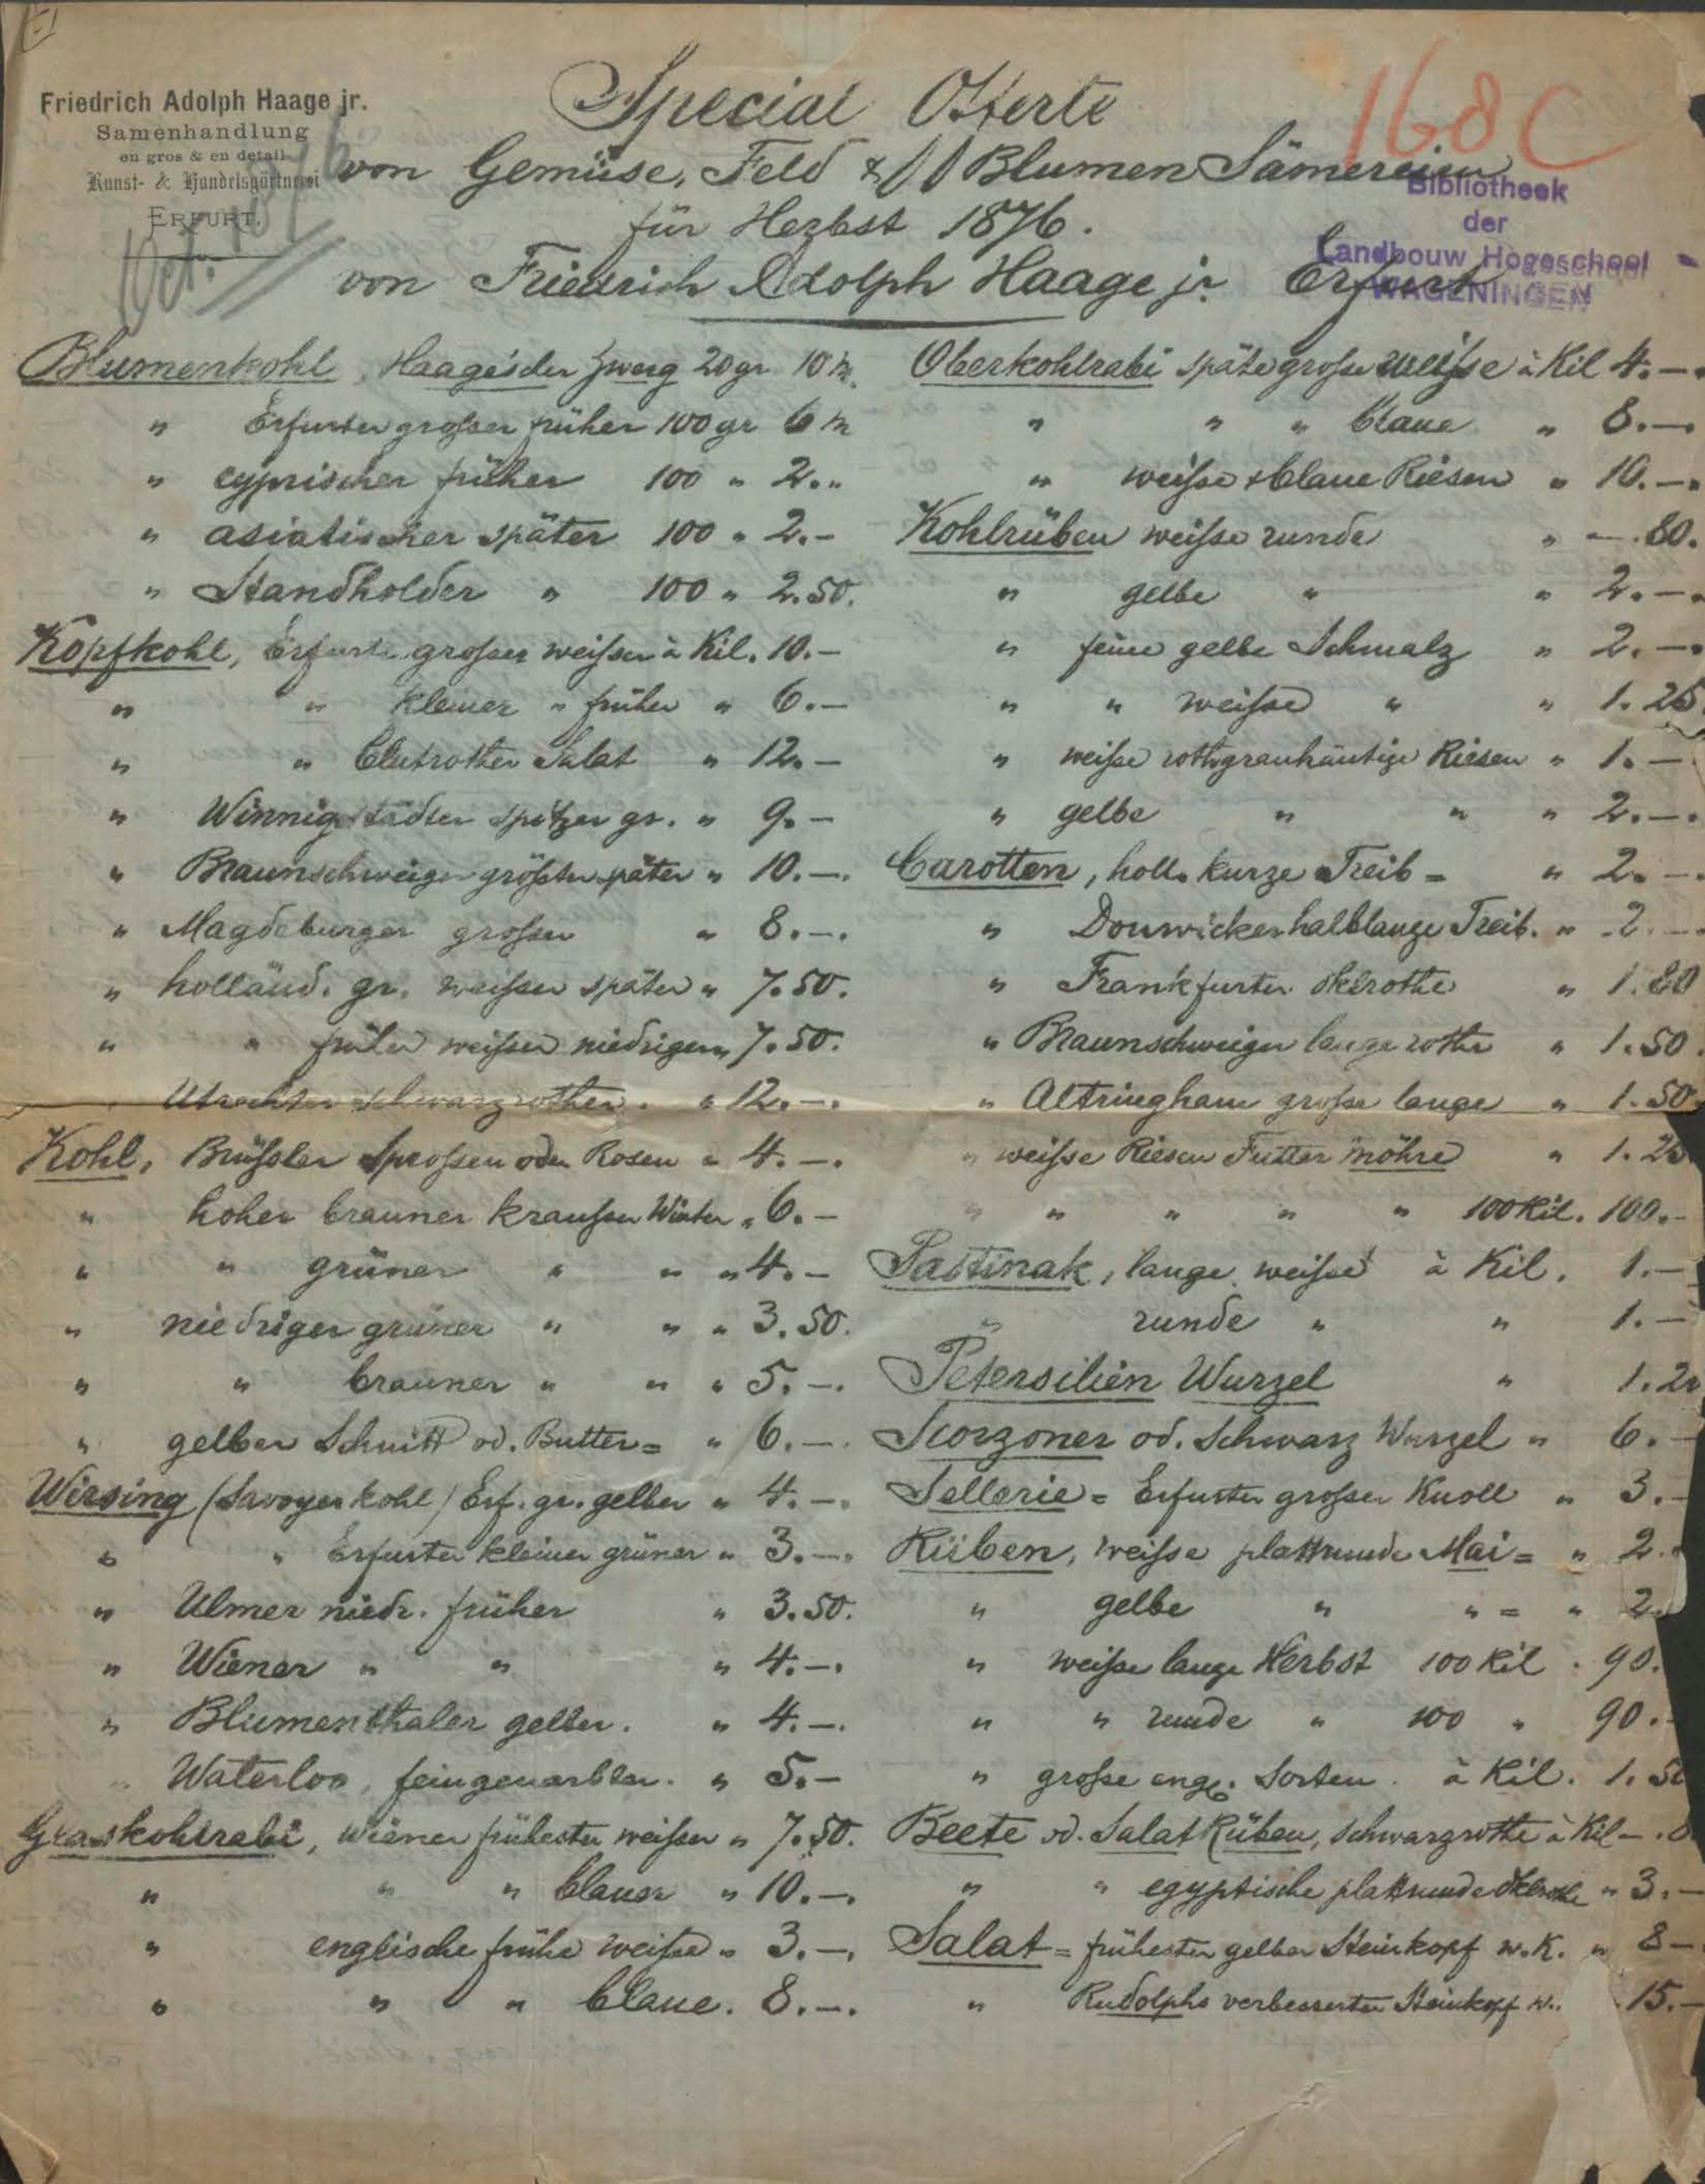 Friedrich Adolph Haage jr.
Samenhandlung
en gros & en detail
Kunst- & Handelsgärtnerei
ERFURT.
Oct. 1876
168 C
Bibliotheek
der
Landbouw Hogeschool
WAGENINGEN
Special Offerte
von Gemüse, Feld & Blumen Sämereien
für Herbst 1876.
von Friedrich Adolph Haage jr. Erfurt
Blumenkohl, Haage'scher Zwerg 20 gr 10 M.
" Erfurter großer früher 100 gr 6 M
" cyprischer früher 100 " 2. "
" asiatischer später 100 " 2.-
" Standholder " 100 " 2.50.
Kopfkohl, Erfurter großer weißer à Kil. 10.-
" " kleiner " früher " 6.-
" " blutrother Salat " 12.-
" Winnigstädter spitzer gr. " 9.-
" Braunschweiger größter später " 10.-.
" Magdeburger großer " 8.-.
" holländ. gr. weißer später " 7.50.
" " früher weißer niedriger " 7.50.
" Utrechter schwarzrother. " 12.-.
Kohl, Brüßler Sprossen oder Rosen " 4.-.
" hoher brauner kraußer Winter " 6.-
" " grüner " " " 4.-
" niedriger grüner " " " 3.50.
" " brauner " " " 5.-.
" gelber Schnitt od. Butter= " 6.-.
Wirsing (Savoyer kohl) Erf. gr. gelber " 4.-.
" " Erfurter kleiner grüner " 3.-.
" Ulmer niedr. früher " 3.50.
" Wiener " " " 4.-.
" Blumenthaler gelber. " 4.-.
" Waterloo, feingenarbter. " 5.-
Glaskohlrabi, Wiener frühester weißer " 7.50.
" " " blauer " 10.-.
" englische frühe weiße " 3.-.
" " " blaue. 8.-.
Oberkohlrabi späte große weiße à Kil 4.-.
" " " blaue " 8.-.
" weiße & blaue Riesen " 10.-.
Kohlrüben weiße runde " -.80.
" gelbe " " 2.-.
" feine gelbe Schmalz " 2.-.
" " weiße " " 1.25
" weiße rothgrauhäutige Riesen " 1.-
" gelbe " " " 2.-.
Carotten, holl. kurze Treib= " 2.-.
" Douwicker halblange Treib. " 2.-
" Frankfurter dklrothe " 1.80
" Braunschweiger lange rothe " 1.50.
" Altringham große lange " 1.50.
" weiße Riesen Futter möhre " 1.25
" " " " " 100 Kil. 100.-
Pastinak, lange weiße à Kil. 1.-
" runde " " 1.-
Petersilien Wurzel " 1.2
Scorzoner od. Schwarz Wurzel " 6.-
Sellerie= Erfurter großer Knoll " 3.-
Rüben, weiße plattrunde Mai= " 2.
" gelbe " " = " 2.
" weiße lange Herbst 100 Kil . 90.
" " runde " 100 " 90.-
" große engl. Sorten. à Kil. 1.50
Beete od. Salat Rüben, schwarzrothe à Kil -.
" " egyptische plattrunde dklrothe " 3.-
Salat= frühester gelber Steinkopf w.K. " 8-
" Rudolphs verbesserter Steinkopf w.. 15.-